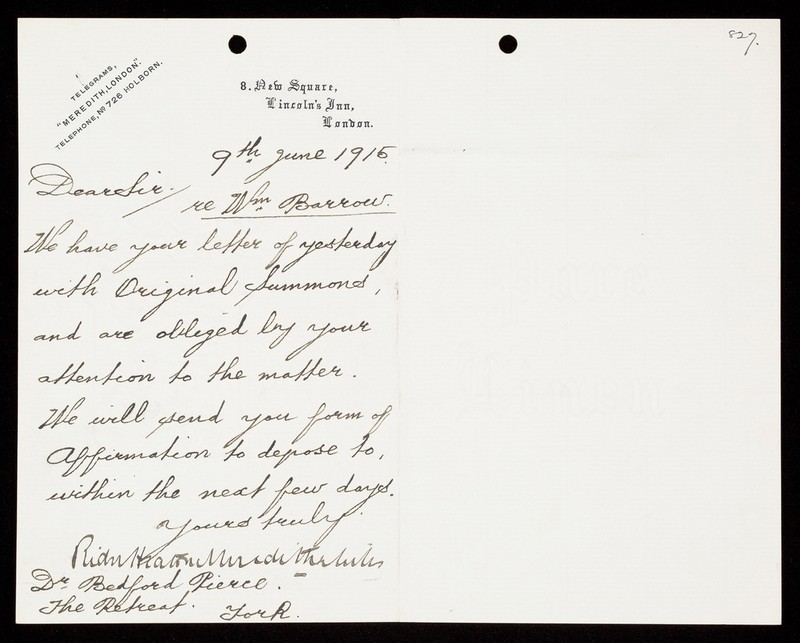 827.
TELEGRAMS,
"MEREDITH, LONDON".
TELEPHONE, Nº 726 HOLBORN.
8. New Square,
Lincoln's Inn,
London.
9th June 1915.
Dear Sir.
re Wm Barrow.
We have your letter of yesterday
with Original Summons,
and are obliged by your
attention to the matter.
We will send you form of
Affirmation to depose to,
within the next few days.
Yours truly.
Dr Bedford Pierce.
The Retreat. York.